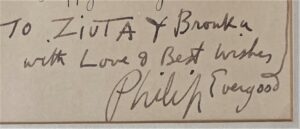 TO ZIUTA & Bronka
with Love & Best Wishes
Philip Evergood